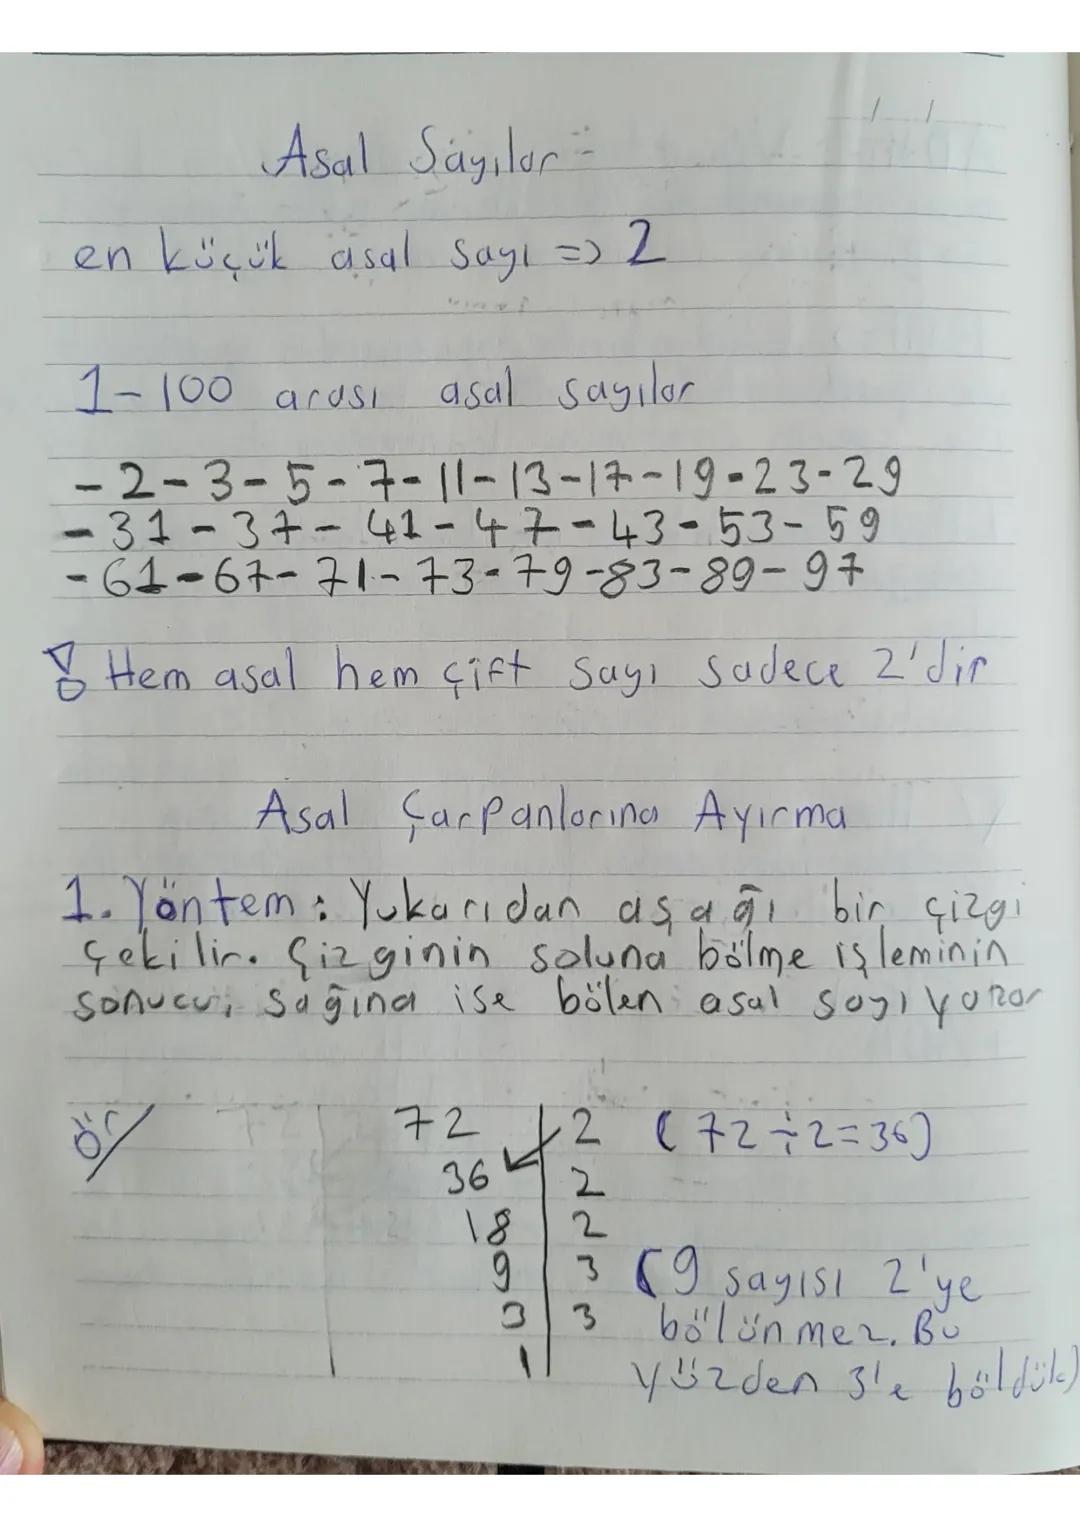 Asal Sayılar
en küçük asal sayı => 2
1-100 arası asal sayılar
-2-3-5-7-11-13-17-19-23-29
-31-37-41-47-43-53-59
-61-67-71-73-79-83-89-97
! Hem asal hem çift sayı sadece 2'dir
Asal Çarpanlarına Ayırma
1. Yöntem: Yukarıdan aşağı bir çizgi
çekilir. Çizginin soluna bölme işleminin
sonucu, sağına ise bölen asal sayı yazar
ör/ 72 | 2 (72÷2=36)
36 | 2
18 | 2
9 | 3 (9 sayısı 2'ye
3 | 3 bölünmez. Bu
1 | yüzden 3'e böldük)